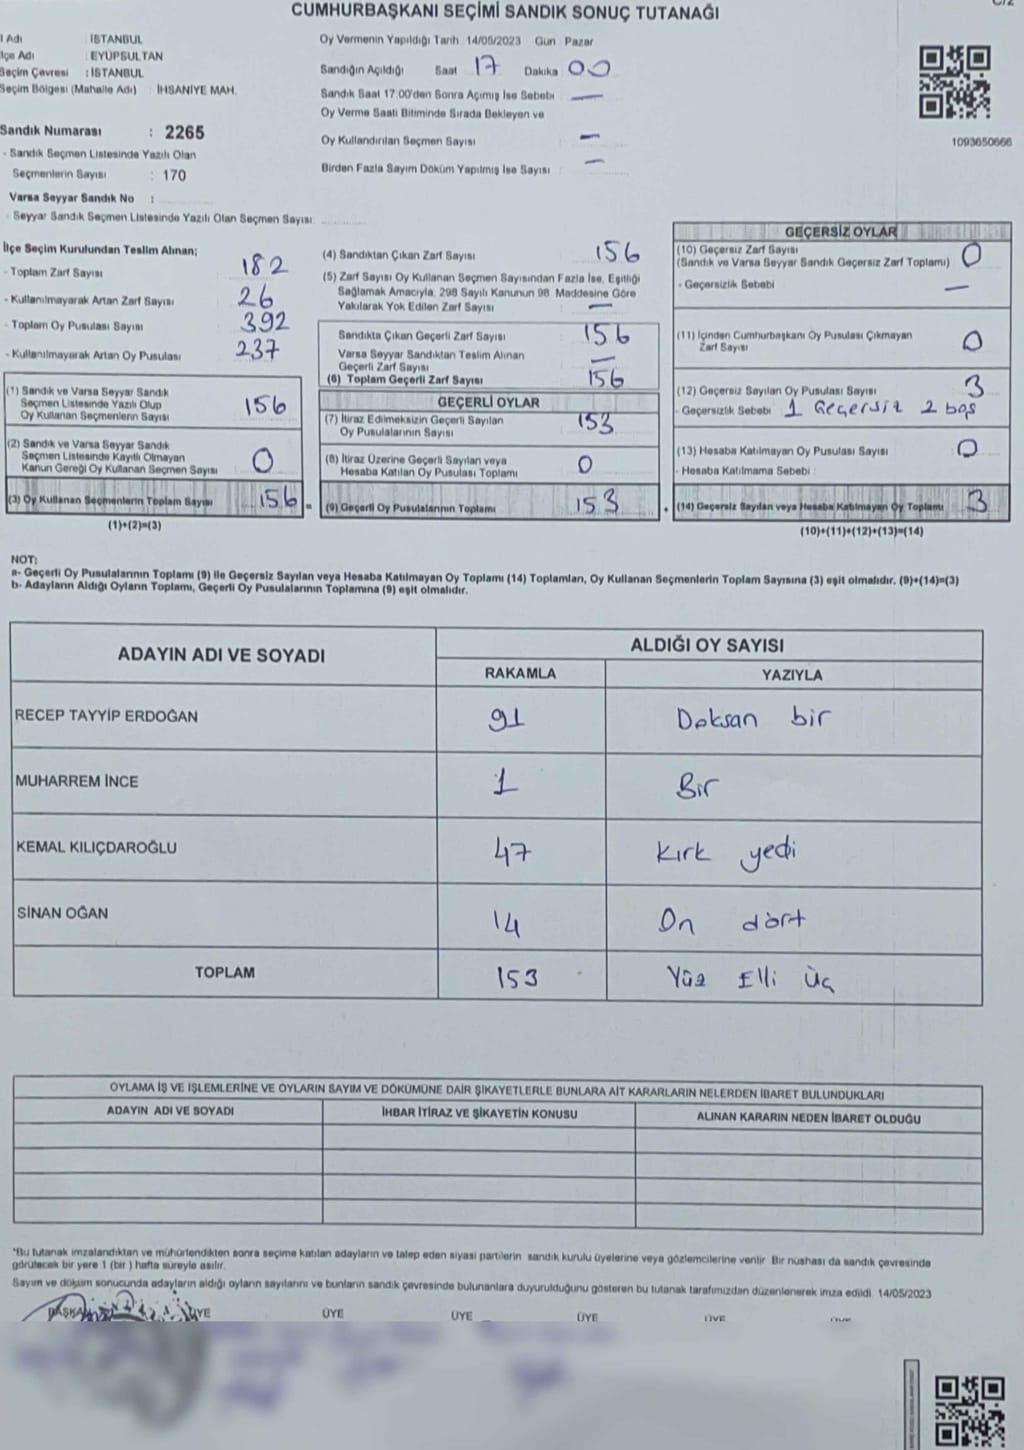 CUMHURBAŞKANI SEÇİMİ SANDIK SONUÇ TUTANAĞI
İl Adı : İSTANBUL
İlçe Adı : EYÜPSULTAN
Seçim Çevresi : İSTANBUL
Seçim Bölgesi (Mahalle Adı) : İHSANİYE MAH.
Sandık Numarası : 2265
- Sandık Seçmen Listesinde Yazılı Olan
Seçmenlerin Sayısı : 170
Varsa Seyyar Sandık No :
- Seyyar Sandık Seçmen Listesinde Yazılı Olan Seçmen Sayısı:
Oy Vermenin Yapıldığı Tarih 14/05/2023 Gün Pazar
Sandığın Açıldığı Saat 17 Dakika 00
Sandık Saat 17:00'den Sonra Açımış İse Sebebi —
Oy Verme Saati Bitiminde Sırada Bekleyen ve
Oy Kullandırılan Seçmen Sayısı —
Birden Fazla Sayım Döküm Yapılmış İse Sayısı : —
1093650666
İlçe Seçim Kurulundan Teslim Alınan;
- Toplam Zarf Sayısı 182
- Kullanılmayarak Artan Zarf Sayısı 26
- Toplam Oy Pusulası Sayısı 392
- Kullanılmayarak Artan Oy Pusulası 237
(1) Sandık ve Varsa Seyyar Sandık
Seçmen Listesinde Yazılı Olup
Oy Kullanan Seçmenlerin Sayısı 156
(2) Sandık ve Varsa Seyyar Sandık
Seçmen Listesinde Kayıtlı Olmayan
Kanun Gereği Oy Kullanan Seçmen Sayısı 0
(3) Oy Kullanan Seçmenlerin Toplam Sayısı 156 =
(1)+(2)=(3)
(4) Sandıktan Çıkan Zarf Sayısı 156
(5) Zarf Sayısı Oy Kullanan Seçmen Sayısından Fazla İse, Eşitliği
Sağlamak Amacıyla, 298 Sayılı Kanunun 98. Maddesine Göre
Yakılarak Yok Edilen Zarf Sayısı —
Sandıkta Çıkan Geçerli Zarf Sayısı 156
Varsa Seyyar Sandıktan Teslim Alınan
Geçerli Zarf Sayısı —
(6) Toplam Geçerli Zarf Sayısı 156
GEÇERLİ OYLAR
(7) İtiraz Edilmeksizin Geçerli Sayılan
Oy Pusulalarının Sayısı 153
(8) İtiraz Üzerine Geçerli Sayılan veya
Hesaba Katılan Oy Pusulası Toplamı 0
(9) Geçerli Oy Pusulalarının Toplamı 153 +
GEÇERSİZ OYLAR
(10) Geçersiz Zarf Sayısı
(Sandık ve Varsa Seyyar Sandık Geçersiz Zarf Toplamı) 0
- Geçersizlik Sebebi —
(11) İçinden Cumhurbaşkanı Oy Pusulası Çıkmayan
Zarf Sayısı 0
(12) Geçersiz Sayılan Oy Pusulası Sayısı 3
- Geçersizlik Sebebi : 1 Geçersiz 2 boş
(13) Hesaba Katılmayan Oy Pusulası Sayısı 0
- Hesaba Katılmama Sebebi :
(14) Geçersiz Sayılan veya Hesaba Katılmayan Oy Toplamı 3
(10)+(11)+(12)+(13)=(14)
NOT:
a- Geçerli Oy Pusulalarının Toplamı (9) ile Geçersiz Sayılan veya Hesaba Katılmayan Oy Toplamı (14) Toplamları, Oy Kullanan Seçmenlerin Toplam Sayısına (3) eşit olmalıdır. (9)+(14)=(3)
b- Adayların Aldığı Oyların Toplamı, Geçerli Oy Pusulalarının Toplamına (9) eşit olmalıdır.
ADAYIN ADI VE SOYADI
ALDIĞI OY SAYISI
RAKAMLA YAZIYLA
RECEP TAYYİP ERDOĞAN 91 Doksan bir
MUHARREM İNCE 1 Bir
KEMAL KILIÇDAROĞLU 47 Kırk yedi
SİNAN OĞAN 14 On dört
TOPLAM 153 Yüz Elli Üç
OYLAMA İŞ VE İŞLEMLERİNE VE OYLARIN SAYIM VE DÖKÜMÜNE DAİR ŞİKAYETLERLE BUNLARA AİT KARARLARIN NELERDEN İBARET BULUNDUKLARI
ADAYIN ADI VE SOYADI İHBAR İTİRAZ VE ŞİKAYETİN KONUSU ALINAN KARARIN NEDEN İBARET OLDUĞU
"Bu tutanak imzalandıktan ve mühürlendikten sonra seçime katılan adayların ve talep eden siyasi partilerin sandık kurulu üyelerine veya gözlemcilerine verilir. Bir nüshası da sandık çevresinde
görülecek bir yere 1 (bir) hafta süreyle asılır.
Sayım ve döküm sonucunda adayların aldığı oyların sayılarını ve bunların sandık çevresinde bulunanlara duyurulduğunu gösteren bu tutanak tarafımızdan düzenlenerek imza edildi. 14/05/2023
BAŞKAN ÜYE ÜYE ÜYE ÜYE ÜYE